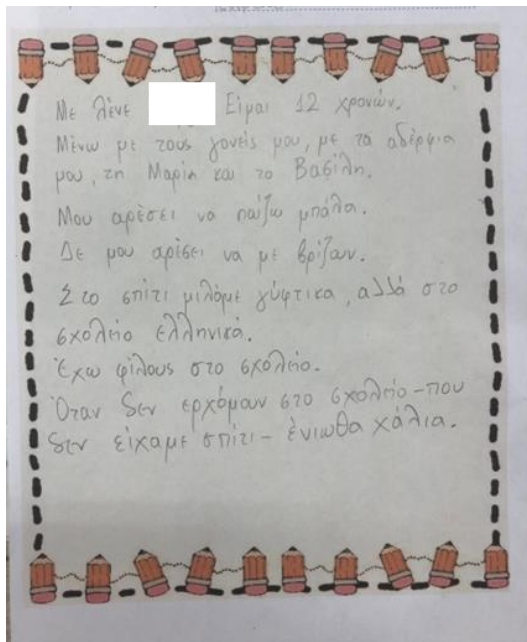 Με λένε Είμαι 12 χρονών.
Μένω με τούς γονείς μου, με τα αδέρφια
μου, τη Μαρία και το Βασίλη.
Μου αρέσει να παίζω μπάλα.
Δε μου αρέσει να με βρίζουν.
Στο σπίτι μιλάμε γύφτικα, αλλά στο
σχολείο ελληνικά.
Έχω φίλους στο σχολείο.
Όταν δεν ερχόμουν στο σχολείο-που
δεν είχαμε σπίτι- ένιωθα χάλια.